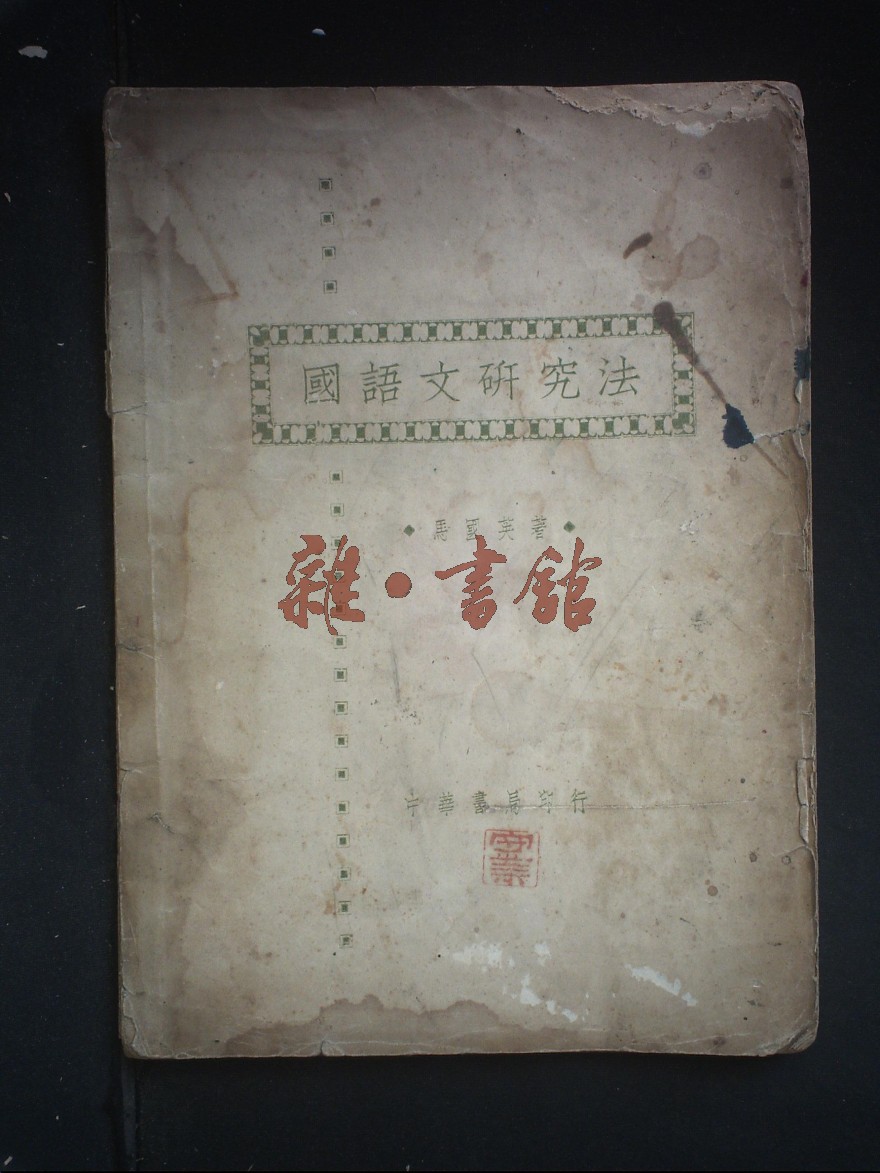 國語文研究法
馬國英著
雜・書館
中華書局印行